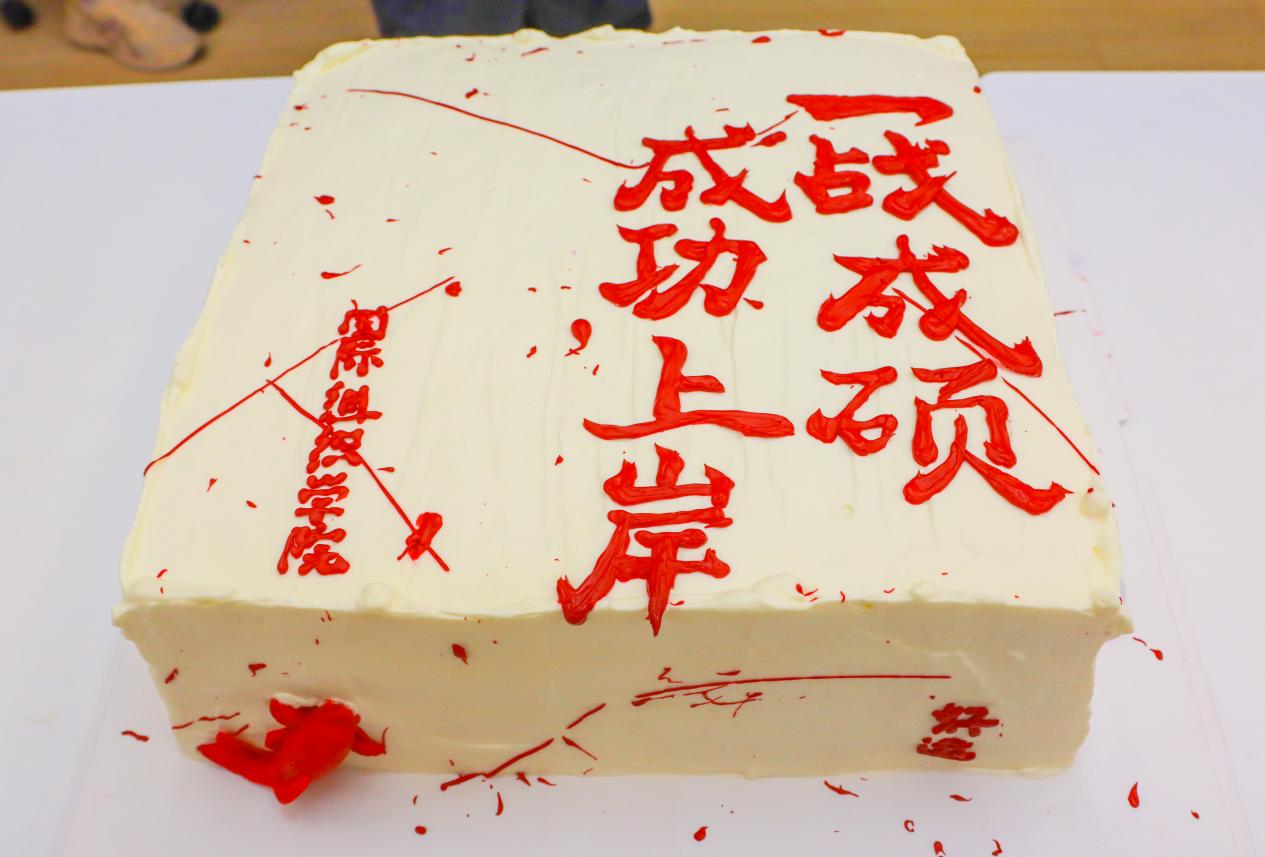 一战成硕
成功上岸
国际组织学院
好运